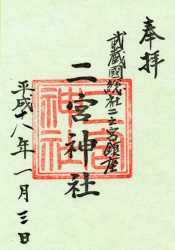 奉拝
武蔵國総社二之宮鎮座
二宮神社
平成十八年一月三日
二宮神社